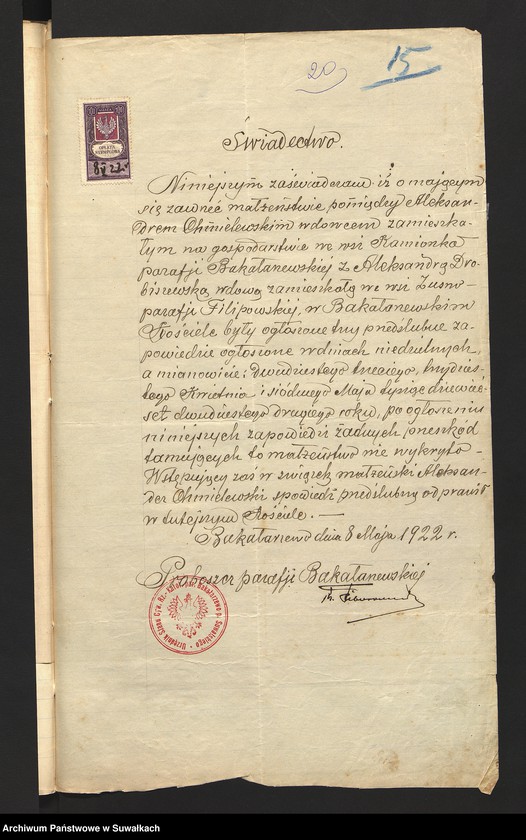 20
15
OPŁATA
STEMPLOWA
8 V 22 r
Świadectwo.
Niniejszym zaświadczam iż o mającym
się zawrzeć małżeństwie pomiędzy Aleksan-
drem Chmielewskim wdowcem zamieszka-
łym na gospodarstwie we wsi Kamionka
parafji Bakałarzewskiej z Aleksandrą Dro-
biszewską wdową zamieszkałą we wsi Zusno
parafji Filipowskiej, w Bakałarzewskim
Kościele były ogłoszone trzy przedślubne za-
powiedzie ogłoszone w dniach niedzielnych,
a mianowicie: dwudziestego trzeciego, trzydzies-
tego Kwietnia i siódmego Maja tysiąc dziewięć-
set dwudziestego drugiego roku, po ogłoszeniu
niniejszych zapowiedzi żadnych przeszkód
tamujących to małżeństwo nie wykryto –
Wstępujący zaś w związek małżeński Aleksan-
der Chmielewski spowiedź przedślubną odprawił
w tutejszym Kościele. —
Bakałarzewo dnia 8 Maja 1922 r.
Proboszcz parafji Bakałarzewskiej
Urzędnik Stanu Cyw. Rz.-Katol. par. Bakałarzewo p. Suwalskiego
Archiwum Państwowe w Suwałkach